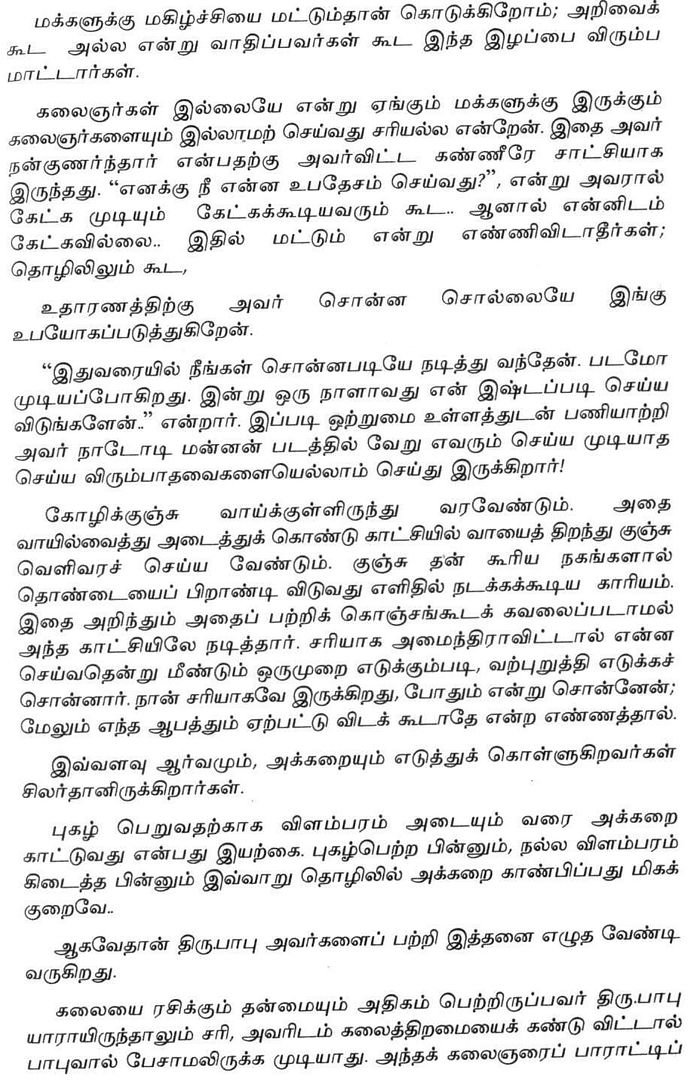 மக்களுக்கு மகிழ்ச்சியை மட்டும்தான் கொடுக்கிறோம்; அறிவைக்
கூட அல்ல என்று வாதிப்பவர்கள் கூட இந்த இழப்பை விரும்ப
மாட்டார்கள்.
கலைஞர்கள் இல்லையே என்று ஏங்கும் மக்களுக்கு இருக்கும்
கலைஞர்களையும் இல்லாமற் செய்வது சரியல்ல என்றேன். இதை அவர்
நன்குணர்ந்தார் என்பதற்கு அவர்விட்ட கண்ணீரே சாட்சியாக
இருந்தது. “எனக்கு நீ என்ன உபதேசம் செய்வது?”, என்று அவரால்
கேட்க முடியும் கேட்கக்கூடியவரும் கூட.. ஆனால் என்னிடம்
கேட்கவில்லை.. இதில் மட்டும் என்று எண்ணிவிடாதீர்கள்;
தொழிலிலும் கூட,
உதாரணத்திற்கு அவர் சொன்ன சொல்லையே இங்கு
உபயோகப்படுத்துகிறேன்.
“இதுவரையில் நீங்கள் சொன்னபடியே நடித்து வந்தேன். படமோ
முடியப்போகிறது. இன்று ஒரு நாளாவது என் இஷ்டப்படி செய்ய
விடுங்களேன்..” என்றார். இப்படி ஒற்றுமை உள்ளத்துடன் பணியாற்றி
அவர் நாடோடி மன்னன் படத்தில் வேறு எவரும் செய்ய முடியாத
செய்ய விரும்பாதவைகளையெல்லாம் செய்து இருக்கிறார்!
கோழிக்குஞ்சு வாய்க்குள்ளிருந்து வரவேண்டும். அதை
வாயில்வைத்து அடைத்துக் கொண்டு காட்சியில் வாயைத் திறந்து குஞ்சு
வெளிவரச் செய்ய வேண்டும். குஞ்சு தன் கூரிய நகங்களால்
தொண்டையைப் பிறாண்டி விடுவது எளிதில் நடக்கக்கூடிய காரியம்.
இதை அறிந்தும் அதைப் பற்றிக் கொஞ்சங்கூடக் கவலைப்படாமல்
அந்த காட்சியிலே நடித்தார். சரியாக அமைந்திராவிட்டால் என்ன
செய்வதென்று மீண்டும் ஒருமுறை எடுக்கும்படி, வற்புறுத்தி எடுக்கச்
சொன்னார். நான் சரியாகவே இருக்கிறது, போதும் என்று சொன்னேன்;
மேலும் எந்த ஆபத்தும் ஏற்பட்டு விடக் கூடாதே என்ற எண்ணத்தால்.
இவ்வளவு ஆர்வமும், அக்கறையும் எடுத்துக் கொள்ளுகிறவர்கள்
சிலர்தானிருக்கிறார்கள்.
புகழ் பெறுவதற்காக விளம்பரம் அடையும் வரை அக்கறை
காட்டுவது என்பது இயற்கை. புகழ்பெற்ற பின்னும், நல்ல விளம்பரம்
கிடைத்த பின்னும் இவ்வாறு தொழிலில் அக்கறை காண்பிப்பது மிகக்
குறைவே..
ஆகவேதான் திரு.பாபு அவர்களைப் பற்றி இத்தனை எழுத வேண்டி
வருகிறது.
கலையை ரசிக்கும் தன்மையும் அதிகம் பெற்றிருப்பவர் திரு.பாபு
யாராயிருந்தாலும் சரி, அவரிடம் கலைத்திறமையைக் கண்டு விட்டால்
பாபுவால் பேசாமலிருக்க முடியாது. அந்தக் கலைஞரைப் பாராட்டிப்